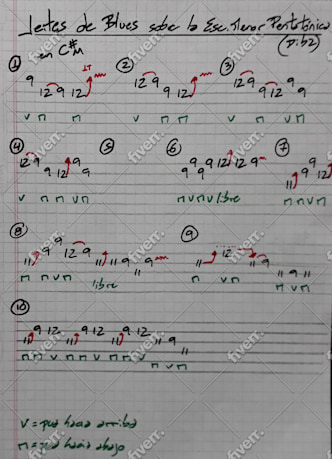 de Blues sobre la Esc. Menor Pentatónica
en C#m (Dib2)
① ② ③
1T
9 12 9 12 9 12 9 12 12 9 9 12 9
v n n n v n n v n
④ ⑤ ⑥ ⑦
12 9 9 12 9 9 9 9 9 9 12 12 9 11 9 9 12
v n n v n n v n v libre n n v n
⑧ ⑨
11 9 9 12 9 11 11 9 11 9 11 12 11 9
11 9 11
n n v n libre n v n n v n
⑩
11 9 12 11 9 12 11 9 12 11 9 11
n n v n n v n n v n v n
v = pua hacia arriba
n = pua hacia abajo
fiverr.